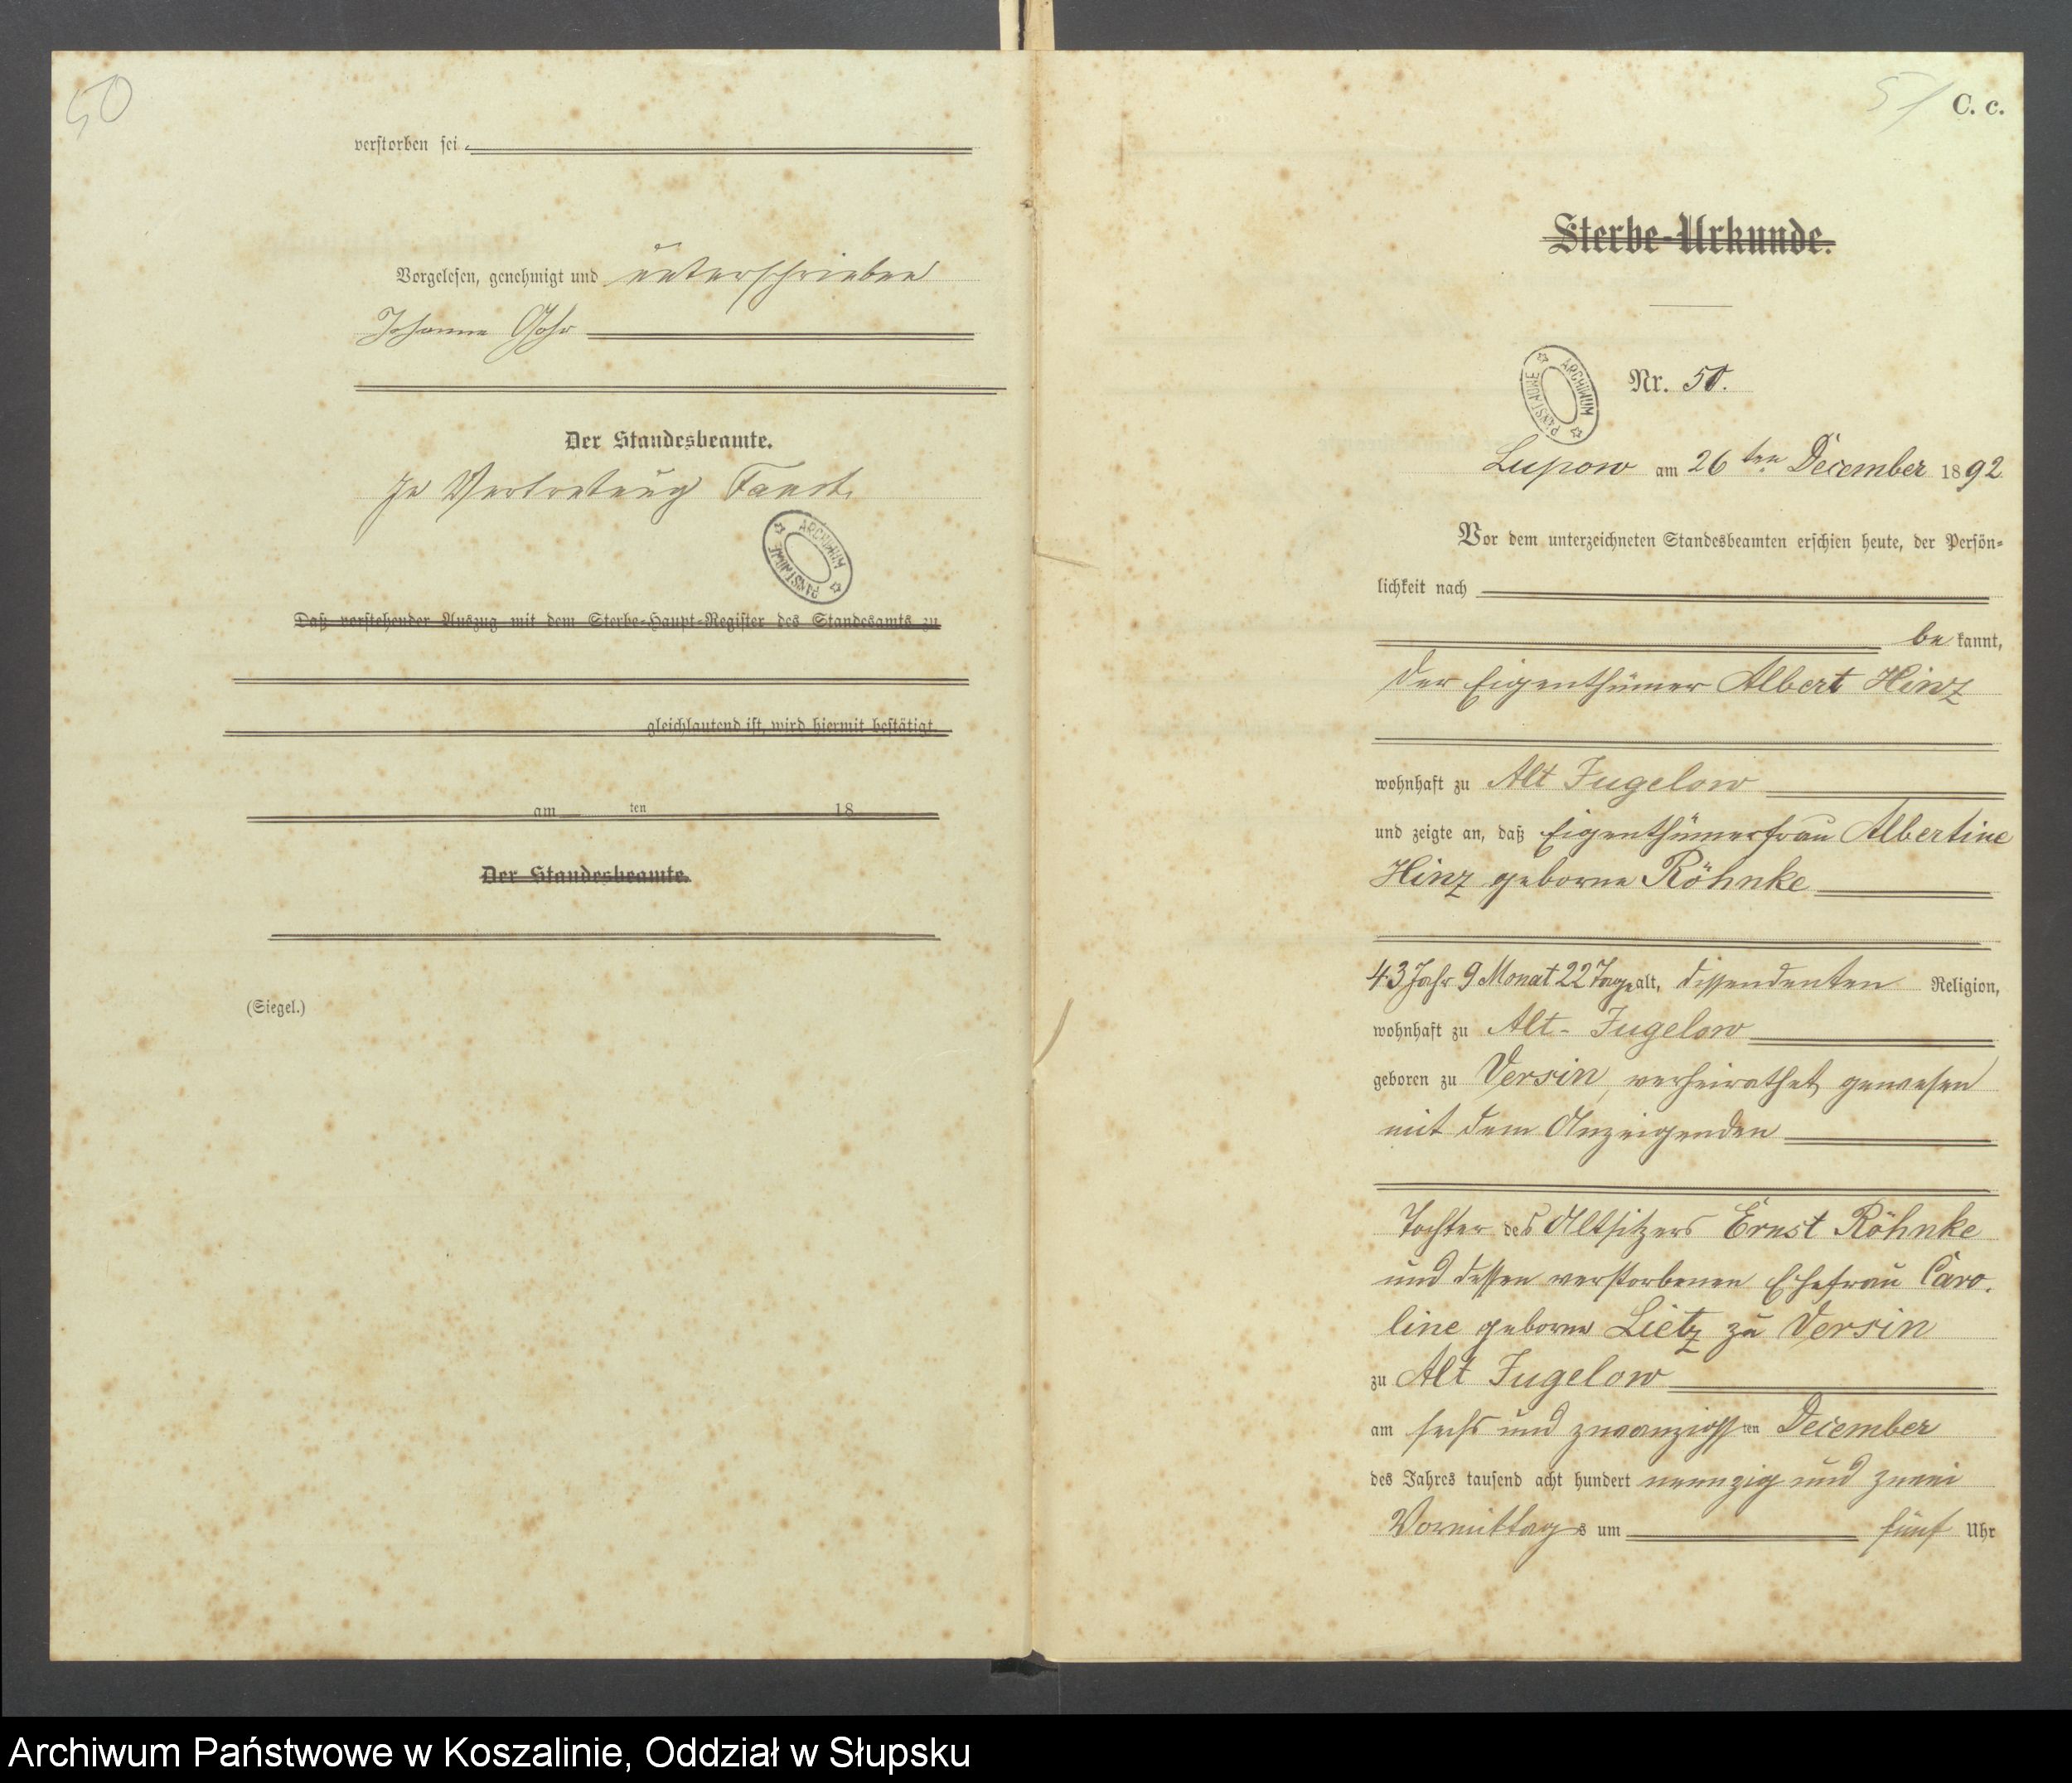 50
verstorben sei
Vorgelesen, genehmigt und unterschrieben
Johanna Gohr
Der Standesbeamte.
In Vertretung
ARCHIWUM PAŃSTWOWE
Daß vorstehender Auszug mit dem Sterbe-Haupt-Register des Standesamts zu
gleichlautend ist, wird hiermit bestätigt.
am ten 18
Der Standesbeamte.
(Siegel.)
51 C. c.
Sterbe-Urkunde.
ARCHIWUM PAŃSTWOWE
Nr. 50.
Lupow am 26 ten December 1892
Vor dem unterzeichneten Standesbeamten erschien heute, der Persön-
lichkeit nach
be kannt,
der Eigenthümer Albert Hinz
wohnhaft zu Alt Jugelow
und zeigte an, daß Eigenthümerfrau Albertine
Hinz geborne Röhnke
43 Jahr 9 Monat 22 Tage alt, dissendenten Religion,
wohnhaft zu Alt-Jugelow
geboren zu Versin, verheirathet gewesen
mit dem Anzeigenden
Tochter des Altsitzers Ernst Röhnke
und dessen verstorbenen Ehefrau Caro-
line geborne Lietz zu Versin
zu Alt Jugelow
am sechs und zwanzigsten December
des Jahres tausend acht hundert neunzig und zwei
Vormittags um fünf Uhr
Archiwum Państwowe w Koszalinie, Oddział w Słupsku